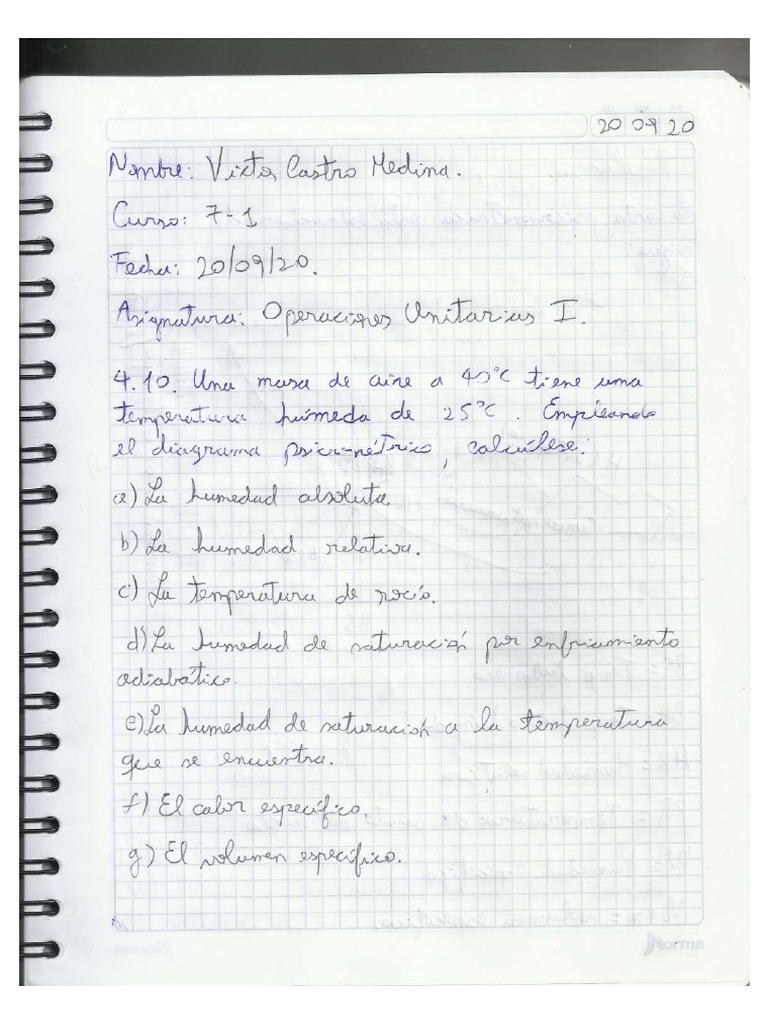 20 09 20
Nombre: Victor Castro Medina.
Curso: 7-1
Fecha: 20/09/20.
Asignatura: Operaciones Unitarias I.
4.10. Una masa de aire a 40°C tiene una
temperatura húmeda de 25°C. Empleando
el diagrama psicrométrico, calcúlese:
a) La humedad absoluta.
b) La humedad relativa.
c) La temperatura de rocío.
d) La humedad de saturación por enfriamiento
adiabático.
e) La humedad de saturación a la temperatura
que se encuentra.
f) El calor específico.
g) El volumen específico.
Norma